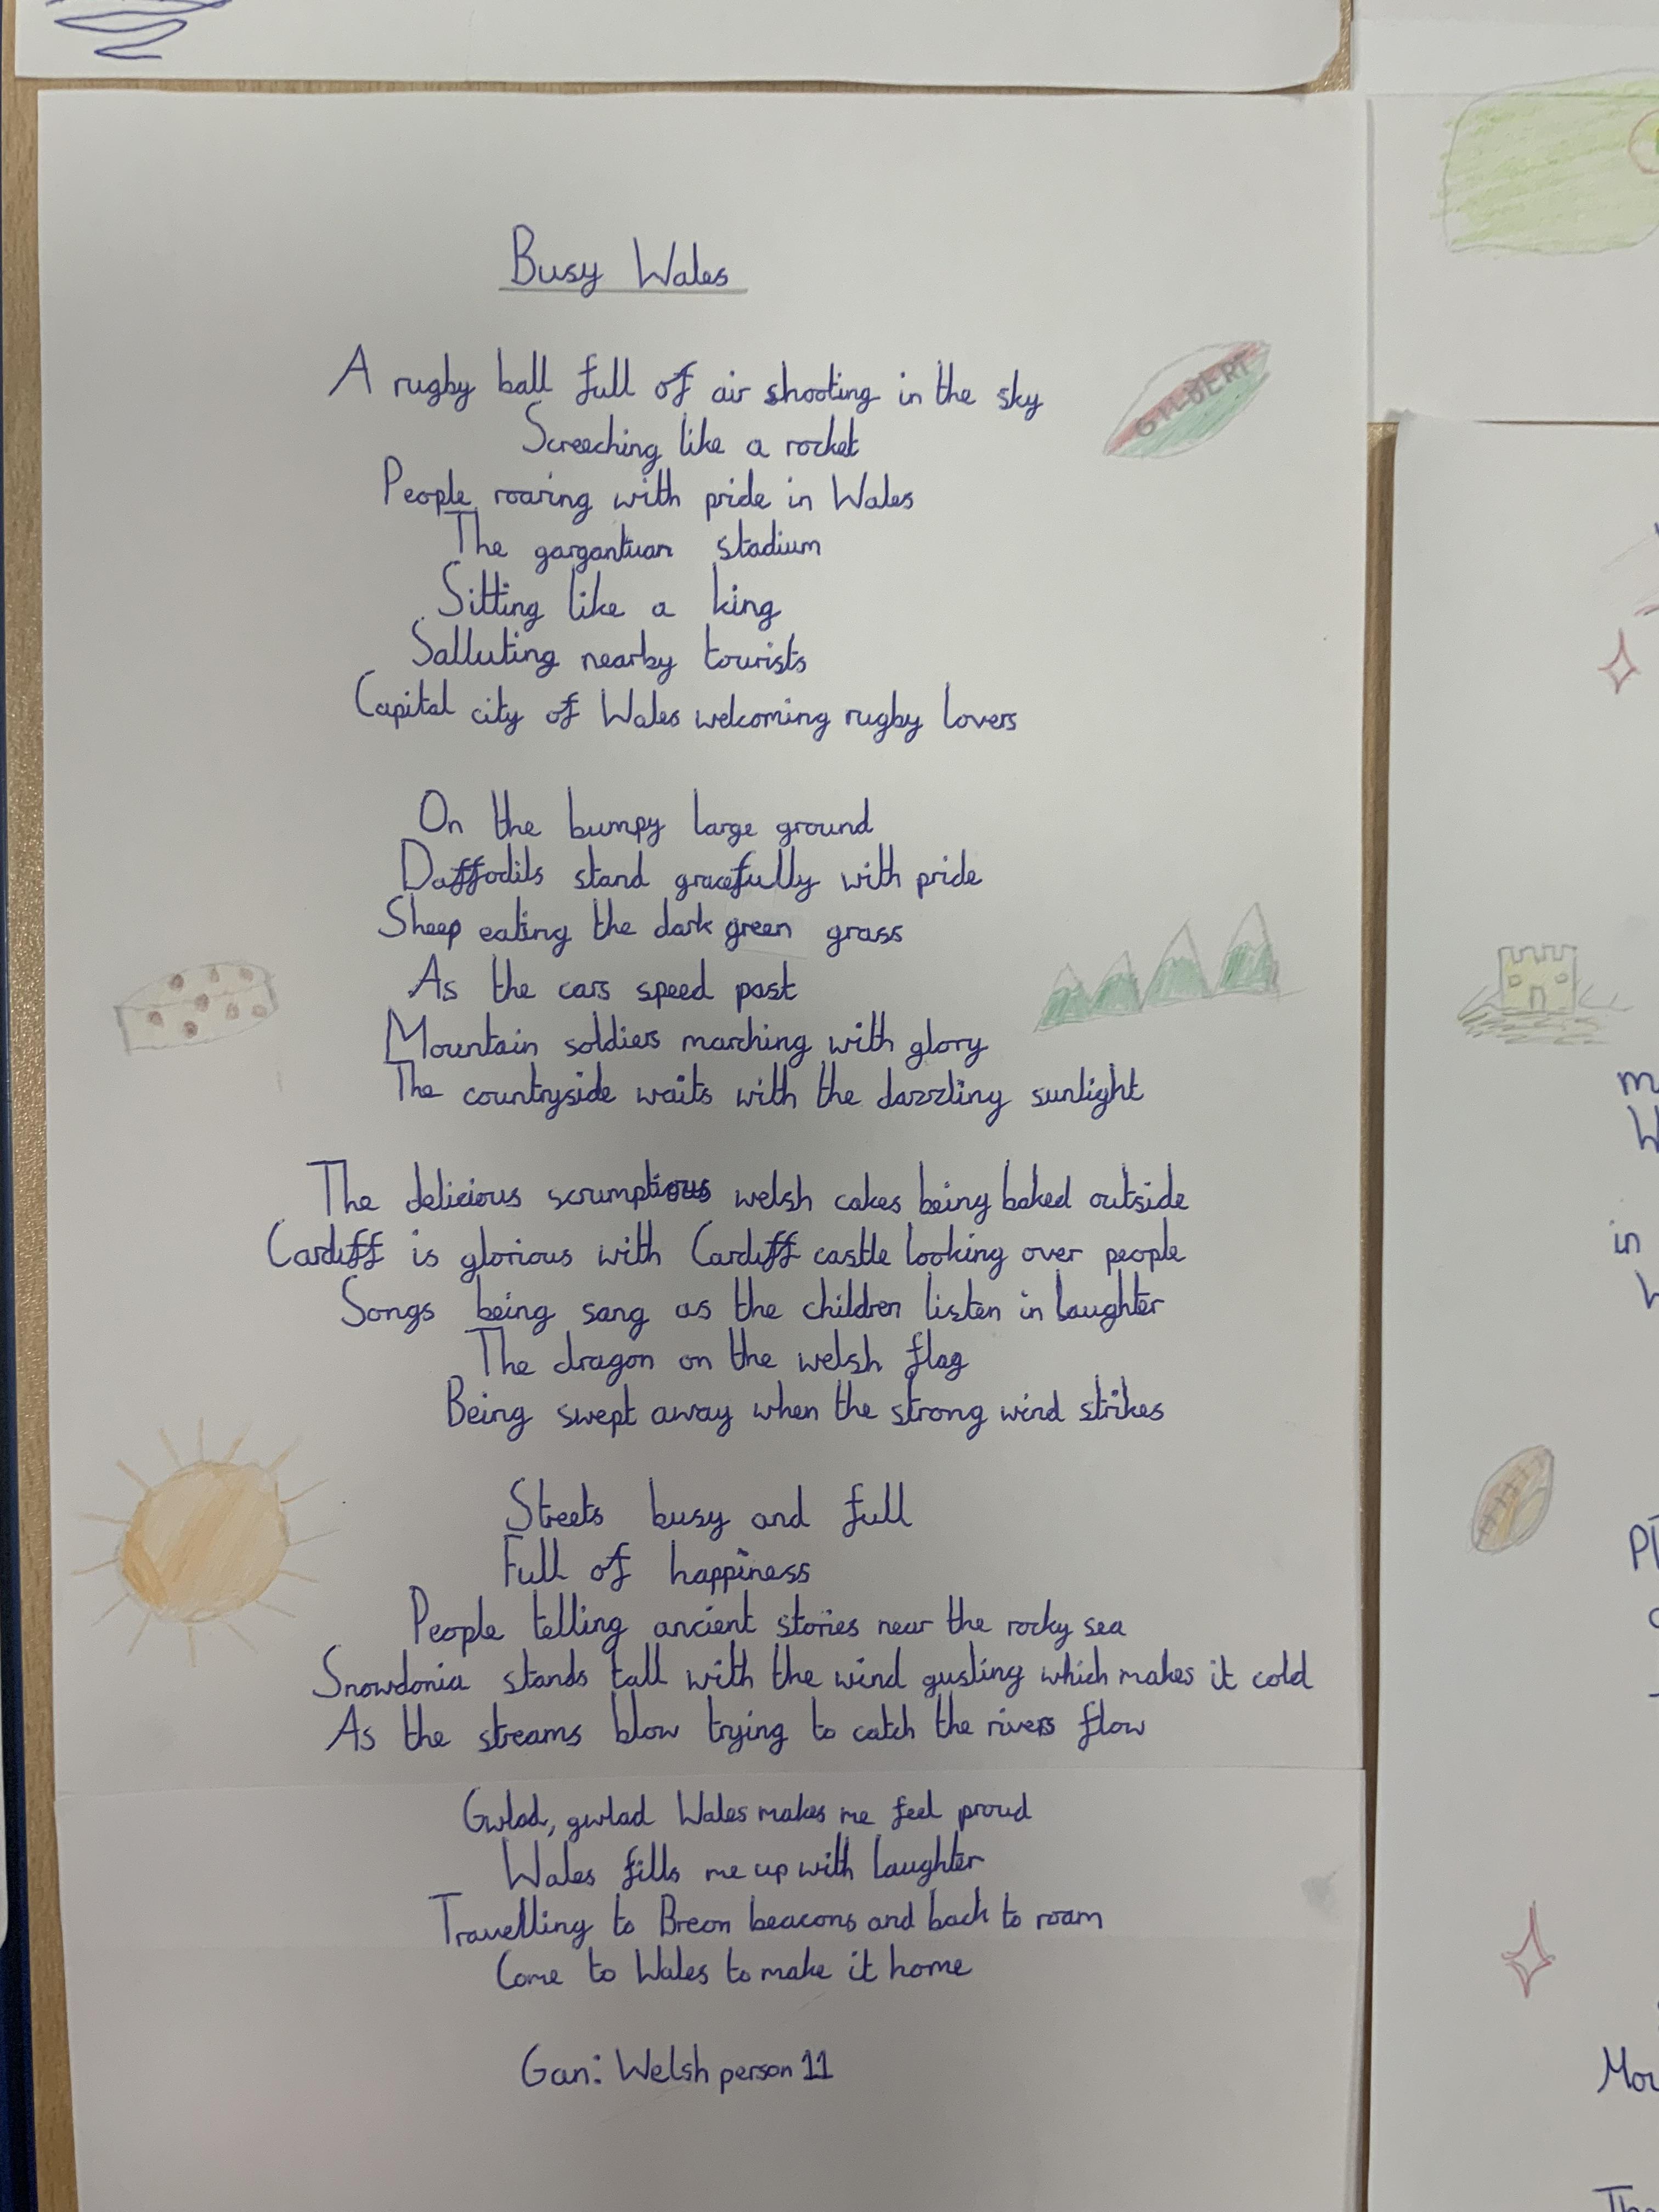 Busy Wales
A rugby ball full of air shooting in the sky
GILBERT
Screeching like a rocket
People roaring with pride in Wales
The gargantuan stadium
Sitting like a king
Salluting nearby tourists
Capital city of Wales welcoming rugby lovers
On the bumpy large ground
Daffodils stand gracefully with pride
Sheep eating the dark green grass
As the cars speed past
Mountain soldiers marching with glory
The countryside waits with the dazzling sunlight
The delicious scrumptious welsh cakes being baked outside
Cardiff is glorious with Cardiff castle looking over people
Songs being sang as the children listen in laughter
The dragon on the welsh flag
Being swept away when the strong wind strikes
Streets busy and full
Full of happiness
People telling ancient stories near the rocky sea
Snowdonia stands tall with the wind gusting which makes it cold
As the streams blow trying to catch the rivers flow
Gwlad, gwlad Wales makes me feel proud
Wales fills me up with laughter
Travelling to Breon beacons and back to roam
Come to Wales to make it home
Gan: Welsh person 11
in